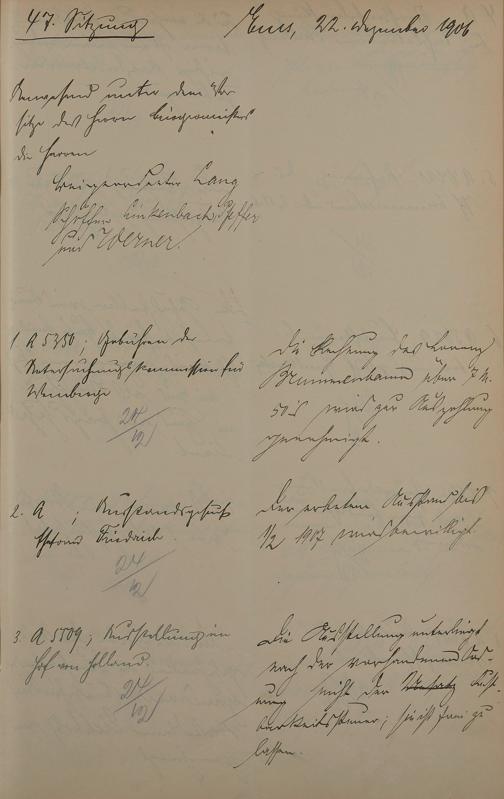 47. Sitzung
Ems, 22. Dezember 1906
Anwesend unter dem Vor-
sitze des Herrn Bürgermeisters
die Herren
Beigeordneter Lang
Schöffen Linkenbach, Pfeffer
und Werner.
1. A 5350; Gebühren der
Untersuchungskommission für
Weinberge
24/12
Die Rechnung des Lorenz
über 7 M.
50 wird zur Auszahlung
genehmigt.
2. A ; Ausstandsgesuch
Friedrich.
24/12
Der erbetene Ausstand bis
1/2 1907 wird bewilligt
3. A 5509; Ausstellung im
Hof von Holland.
24/12
Die Ausstellung unterliegt
nach der vorhandenen Ord-
nung nicht der Lust-
barkeitssteuer; sie ist frei zu
lassen.